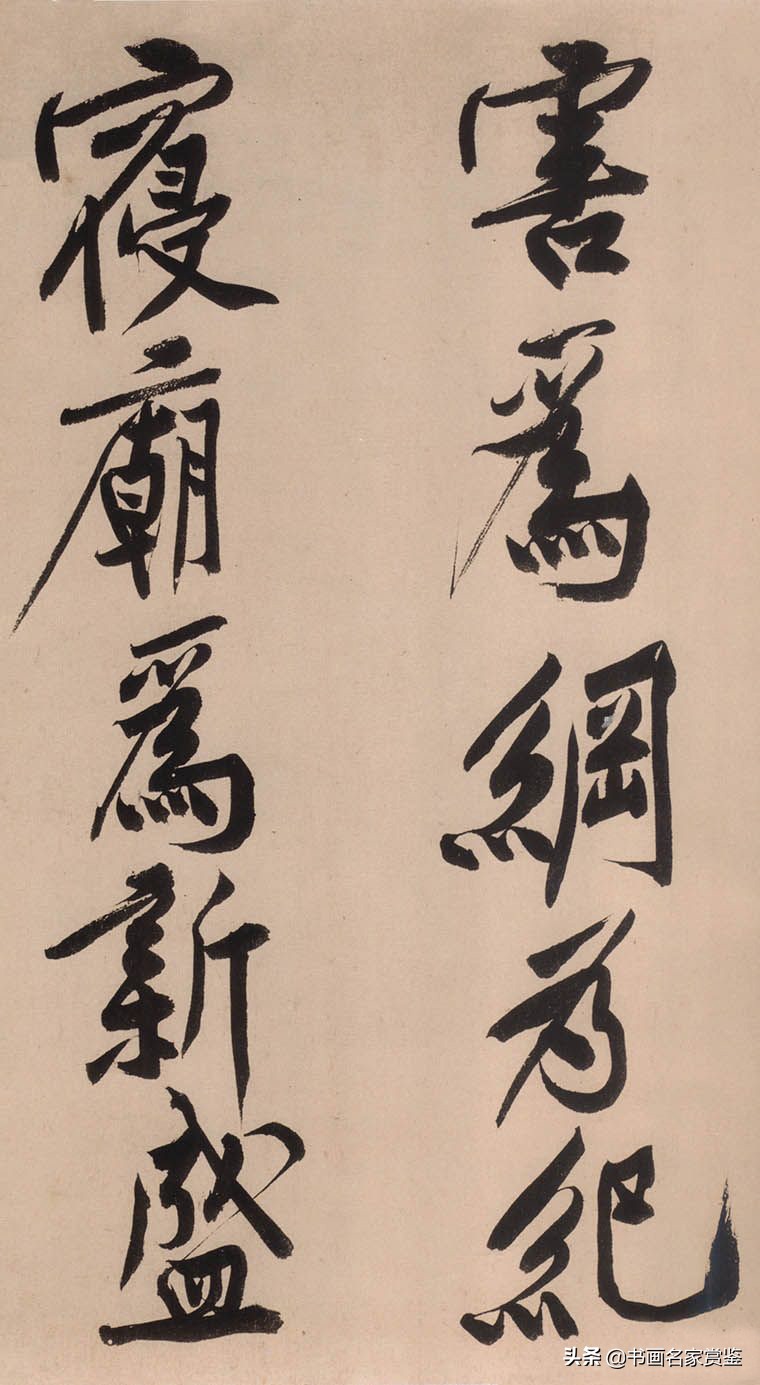 害爲綱為紀
寢廟爲新盛
头条 @书画名家赏鉴